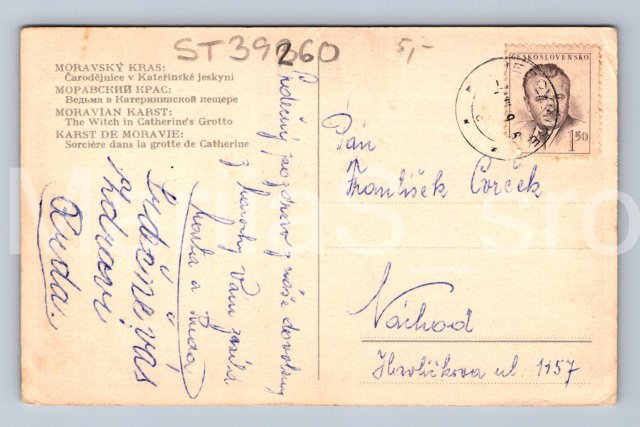 ST 39260
5,-
ČESKOSLOVENSKO
1.50
MORAVSKÝ KRAS:
Čarodějnice v Kateřinské jeskyni
МОРАВСКИЙ КРАС:
Ведьма в Катерининской пещере
MORAVIAN KARST:
The Witch in Catherine's Grotto
KARST DE MORAVIE:
Sorcière dans la grotte de Catherine
Srdečný pozdrav z naše dovolený
z Moravy Vám zasílá
a Ruda
Srdečně vás
zdraví
Ruda.
Pán
František Cvrček
Náchod
Havlíčkova ul. 1157